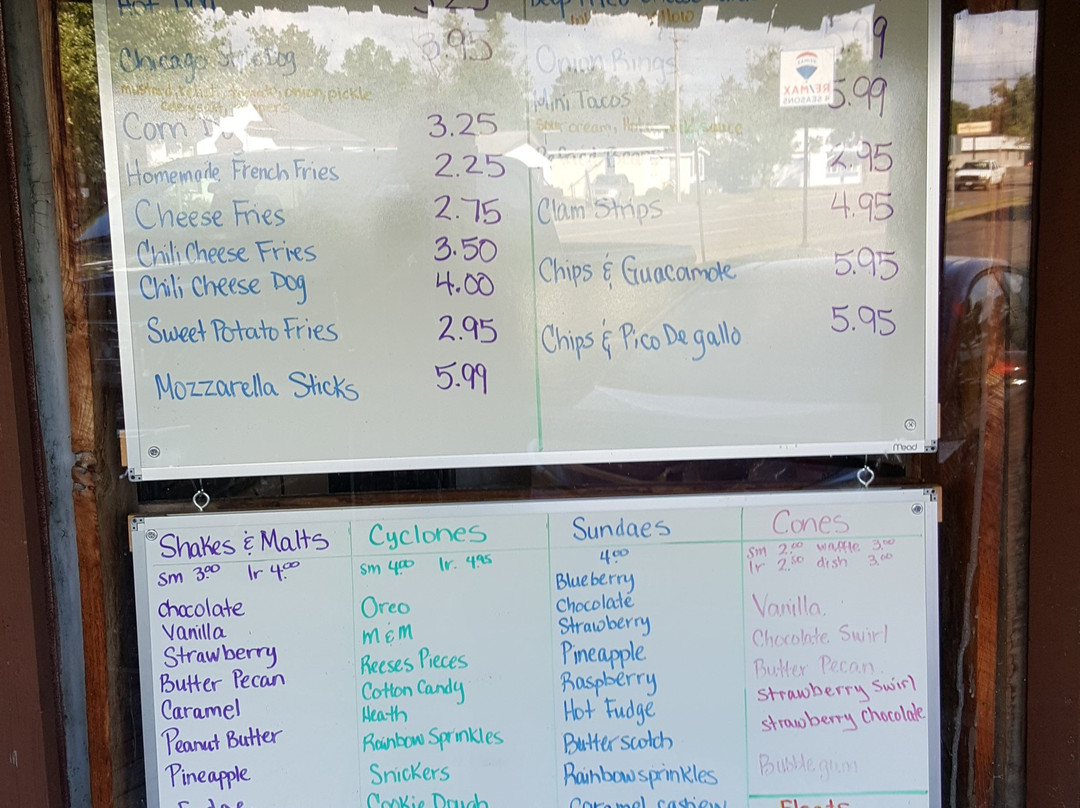 Hot Dog 3.25
Chicago Style Dog 3.95
mustard, relish, tomato, onion, pickle
Corn 3.25
Homemade French Fries 2.25
Cheese Fries 2.75
Chili Cheese Fries 3.50
Chili Cheese Dog 4.00
Sweet Potato Fries 2.95
Mozzarella Sticks 5.99
Onion Rings
Mini Tacos 5.99
Sour cream,
2.95
Clam Strips 4.95
Chips & Guacamole 5.95
Chips & Pico De gallo 5.95
RE/MAX
4 SEASONS
Mead
Shakes & Malts
Sm 3.00 lr 4.00
chocolate
Vanilla
Strawberry
Butter Pecan
Caramel
Peanut Butter
Pineapple
Fudge
Cyclones
sm 4.00 lr. 4.95
Oreo
M & M
Reeses Pieces
Cotton Candy
Heath
Rainbow Sprinkles
Snickers
Cookie Dough
Sundaes
4.00
Blueberry
Chocolate
Strawberry
Pineapple
Raspberry
Hot Fudge
Butterscotch
Rainbow sprinkles
Caramel cashew
Cones
sm 2.00 waffle 3.00
lr 2.50 dish 3.00
Vanilla
Chocolate Swirl
Butter Pecan
Strawberry Swirl
strawberry chocolate
Bubblegum
Floats